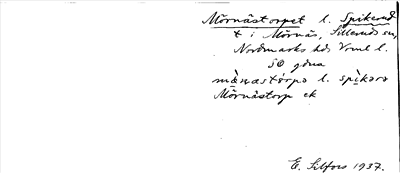 Mörnästorpet l. Spikerud
t i Mörnäs, Silleruds sn,
Nordmarks hd, Vrml l.
SO gdna
mö̀nastórpə l. spìkərə
Mörnästorp ek
E. Silfors 1937.